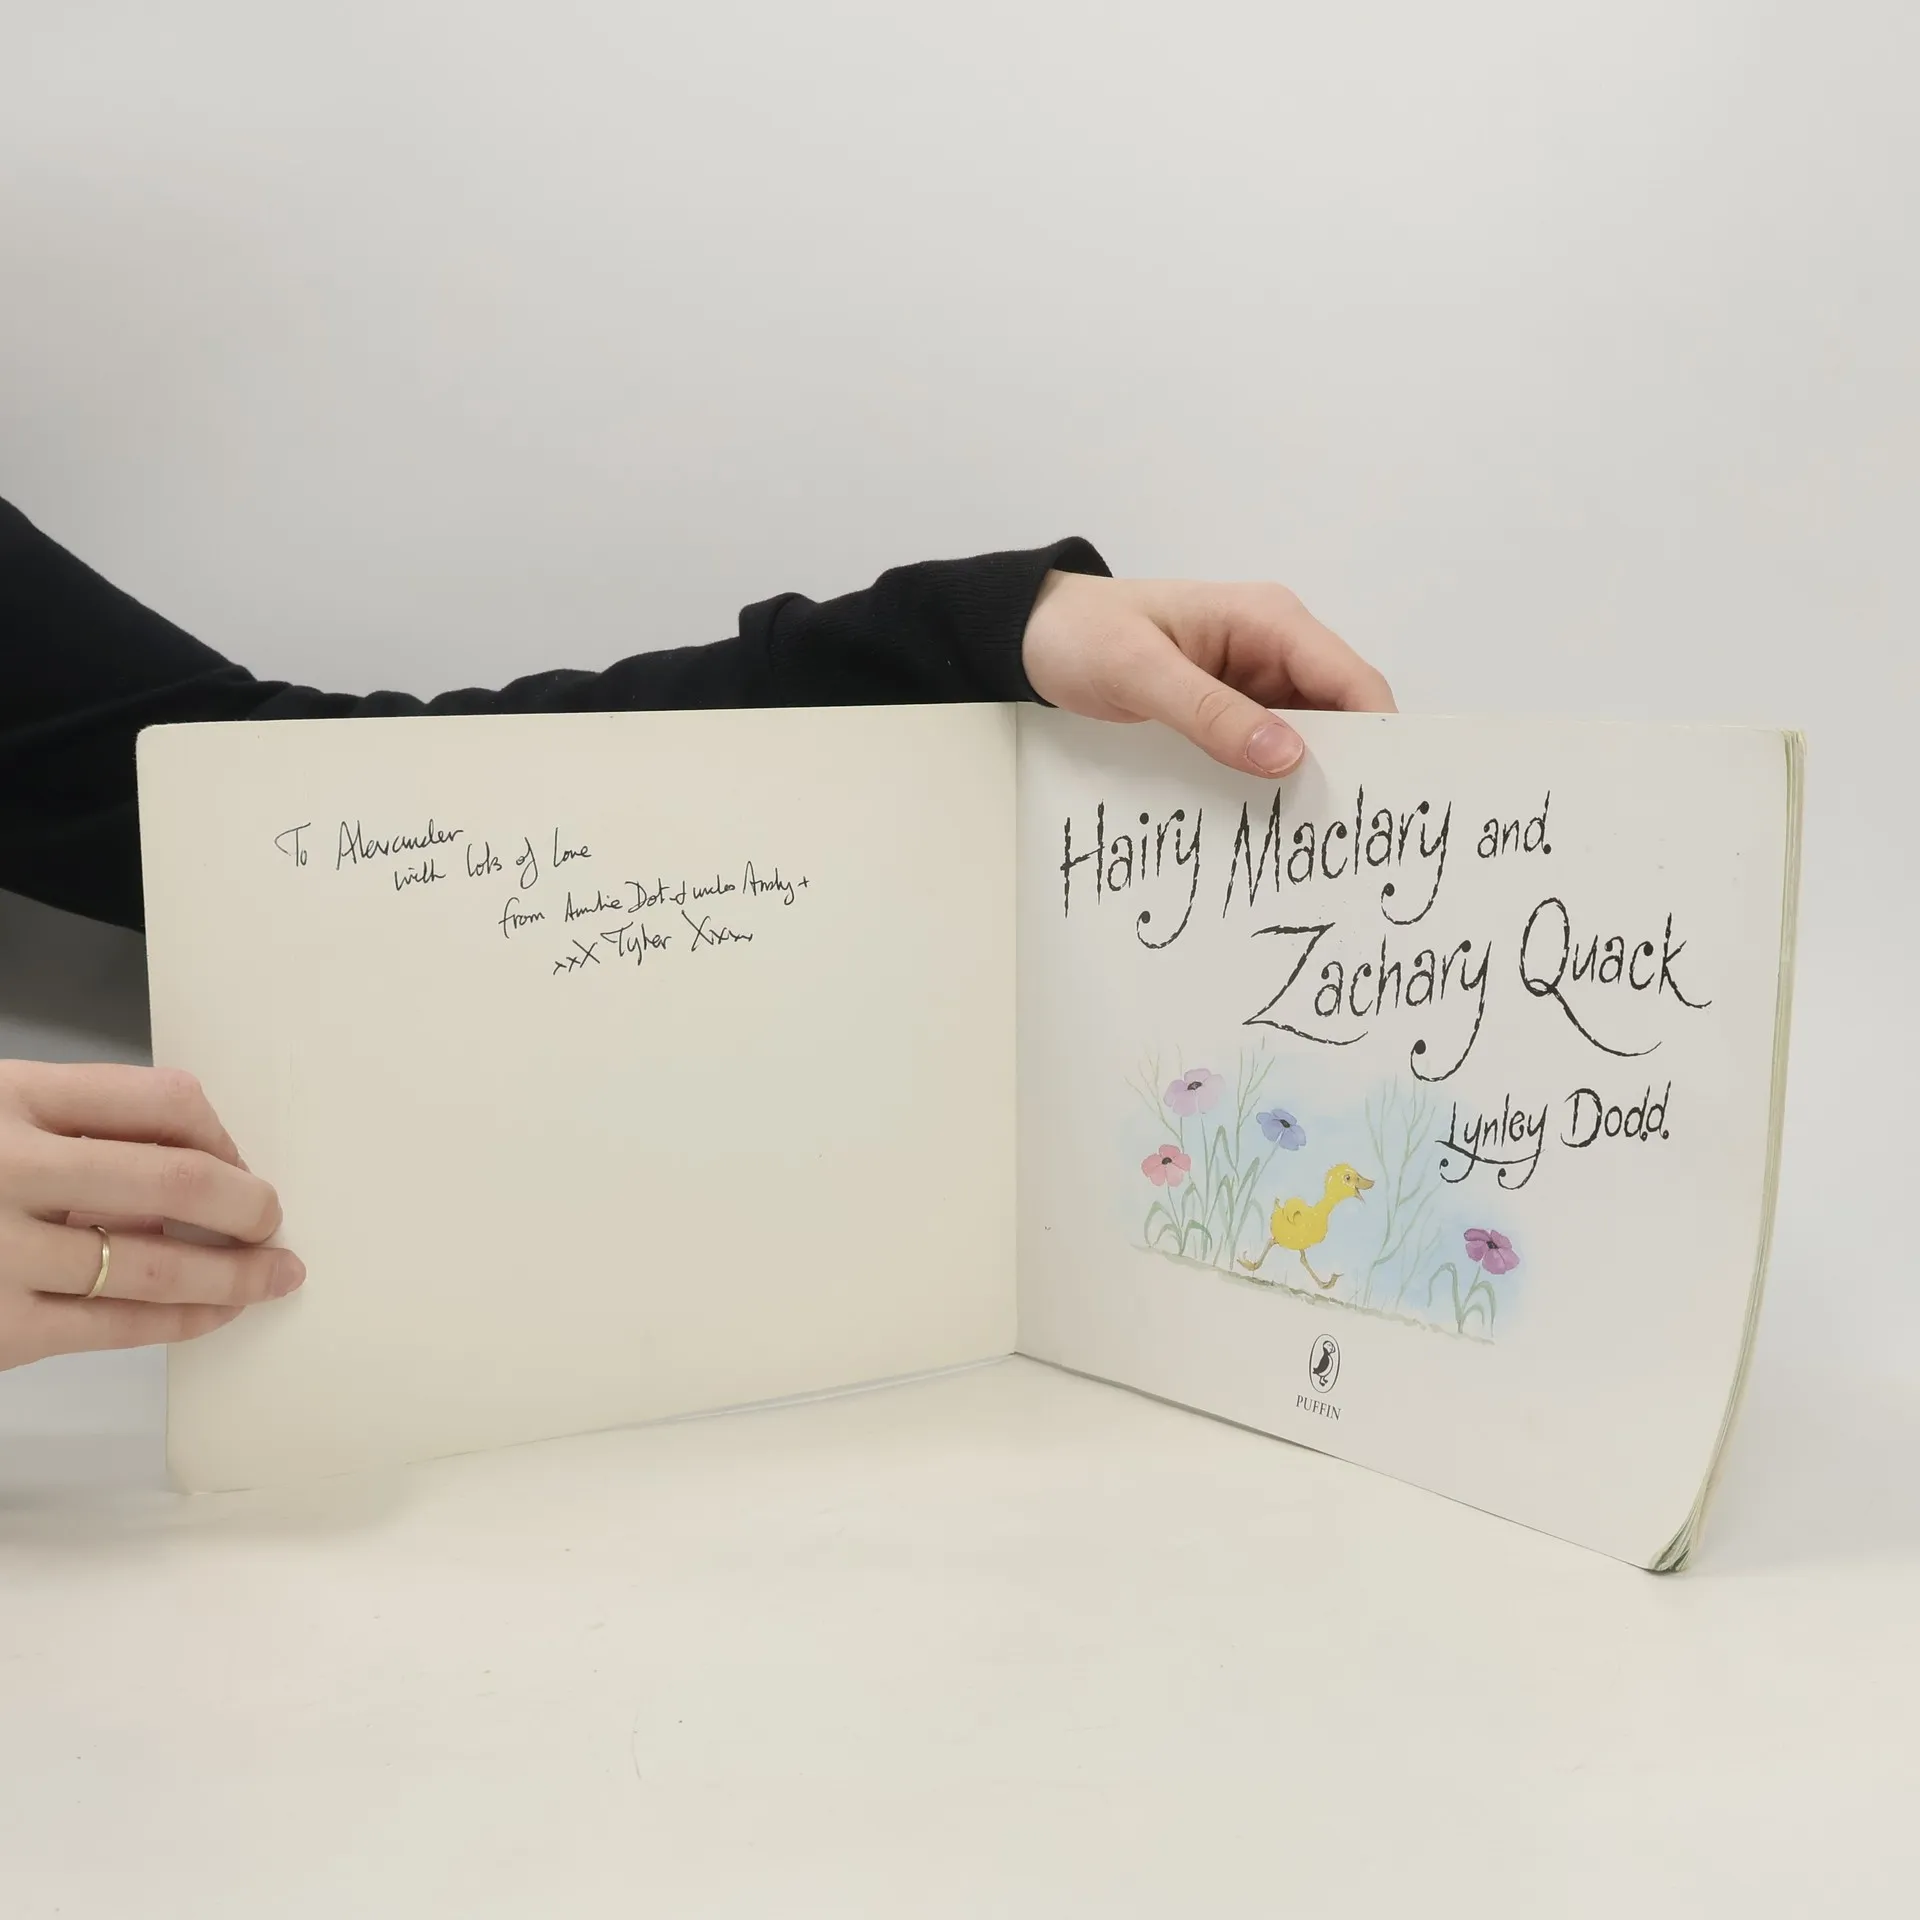 To Alexander
with lots of love
from Auntie Dot + uncle Andy +
xxX Tyler Xxxxx
Hairy Maclary and
Zachary Quack
Lynley Dodd
PUFFIN